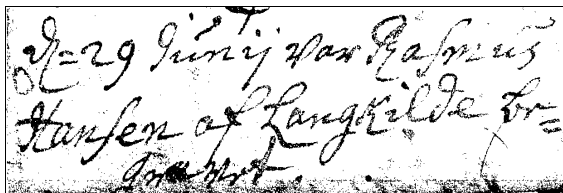 D= 29 Junij var Rasmus
Hansen af Langkilde be=
gravet.